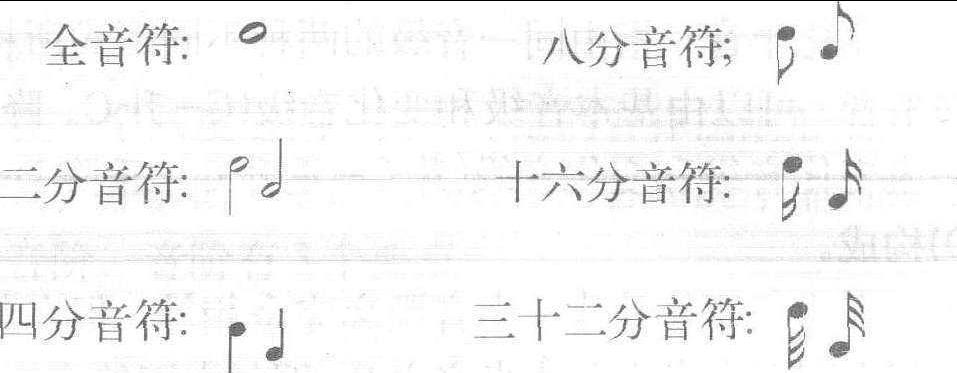 全音符: 八分音符;
二分音符: 十六分音符:
四分音符: 三十二分音符: